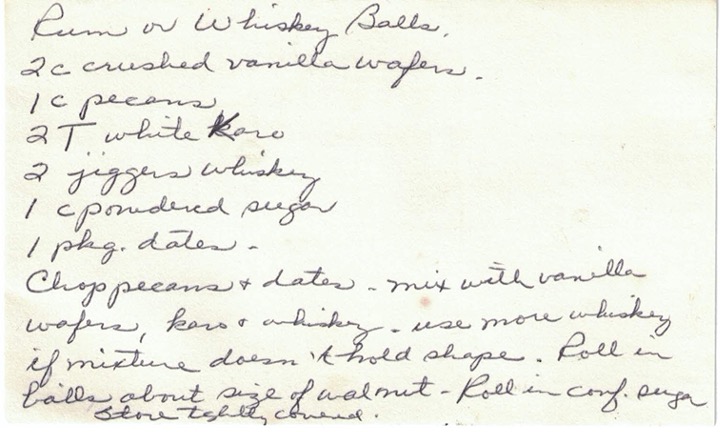 Rum or Whiskey Balls.
2c crushed vanilla wafers.
1 c pecans
2 T white Karo
2 jiggers whiskey
1 c powdered sugar
1 pkg. dates -
Chop pecans + dates - mix with vanilla
wafers, karo + whiskey - use more whiskey
if mixture doesn't hold shape. Roll in
balls about size of walnut - Roll in conf. sugar
Store tightly covered.